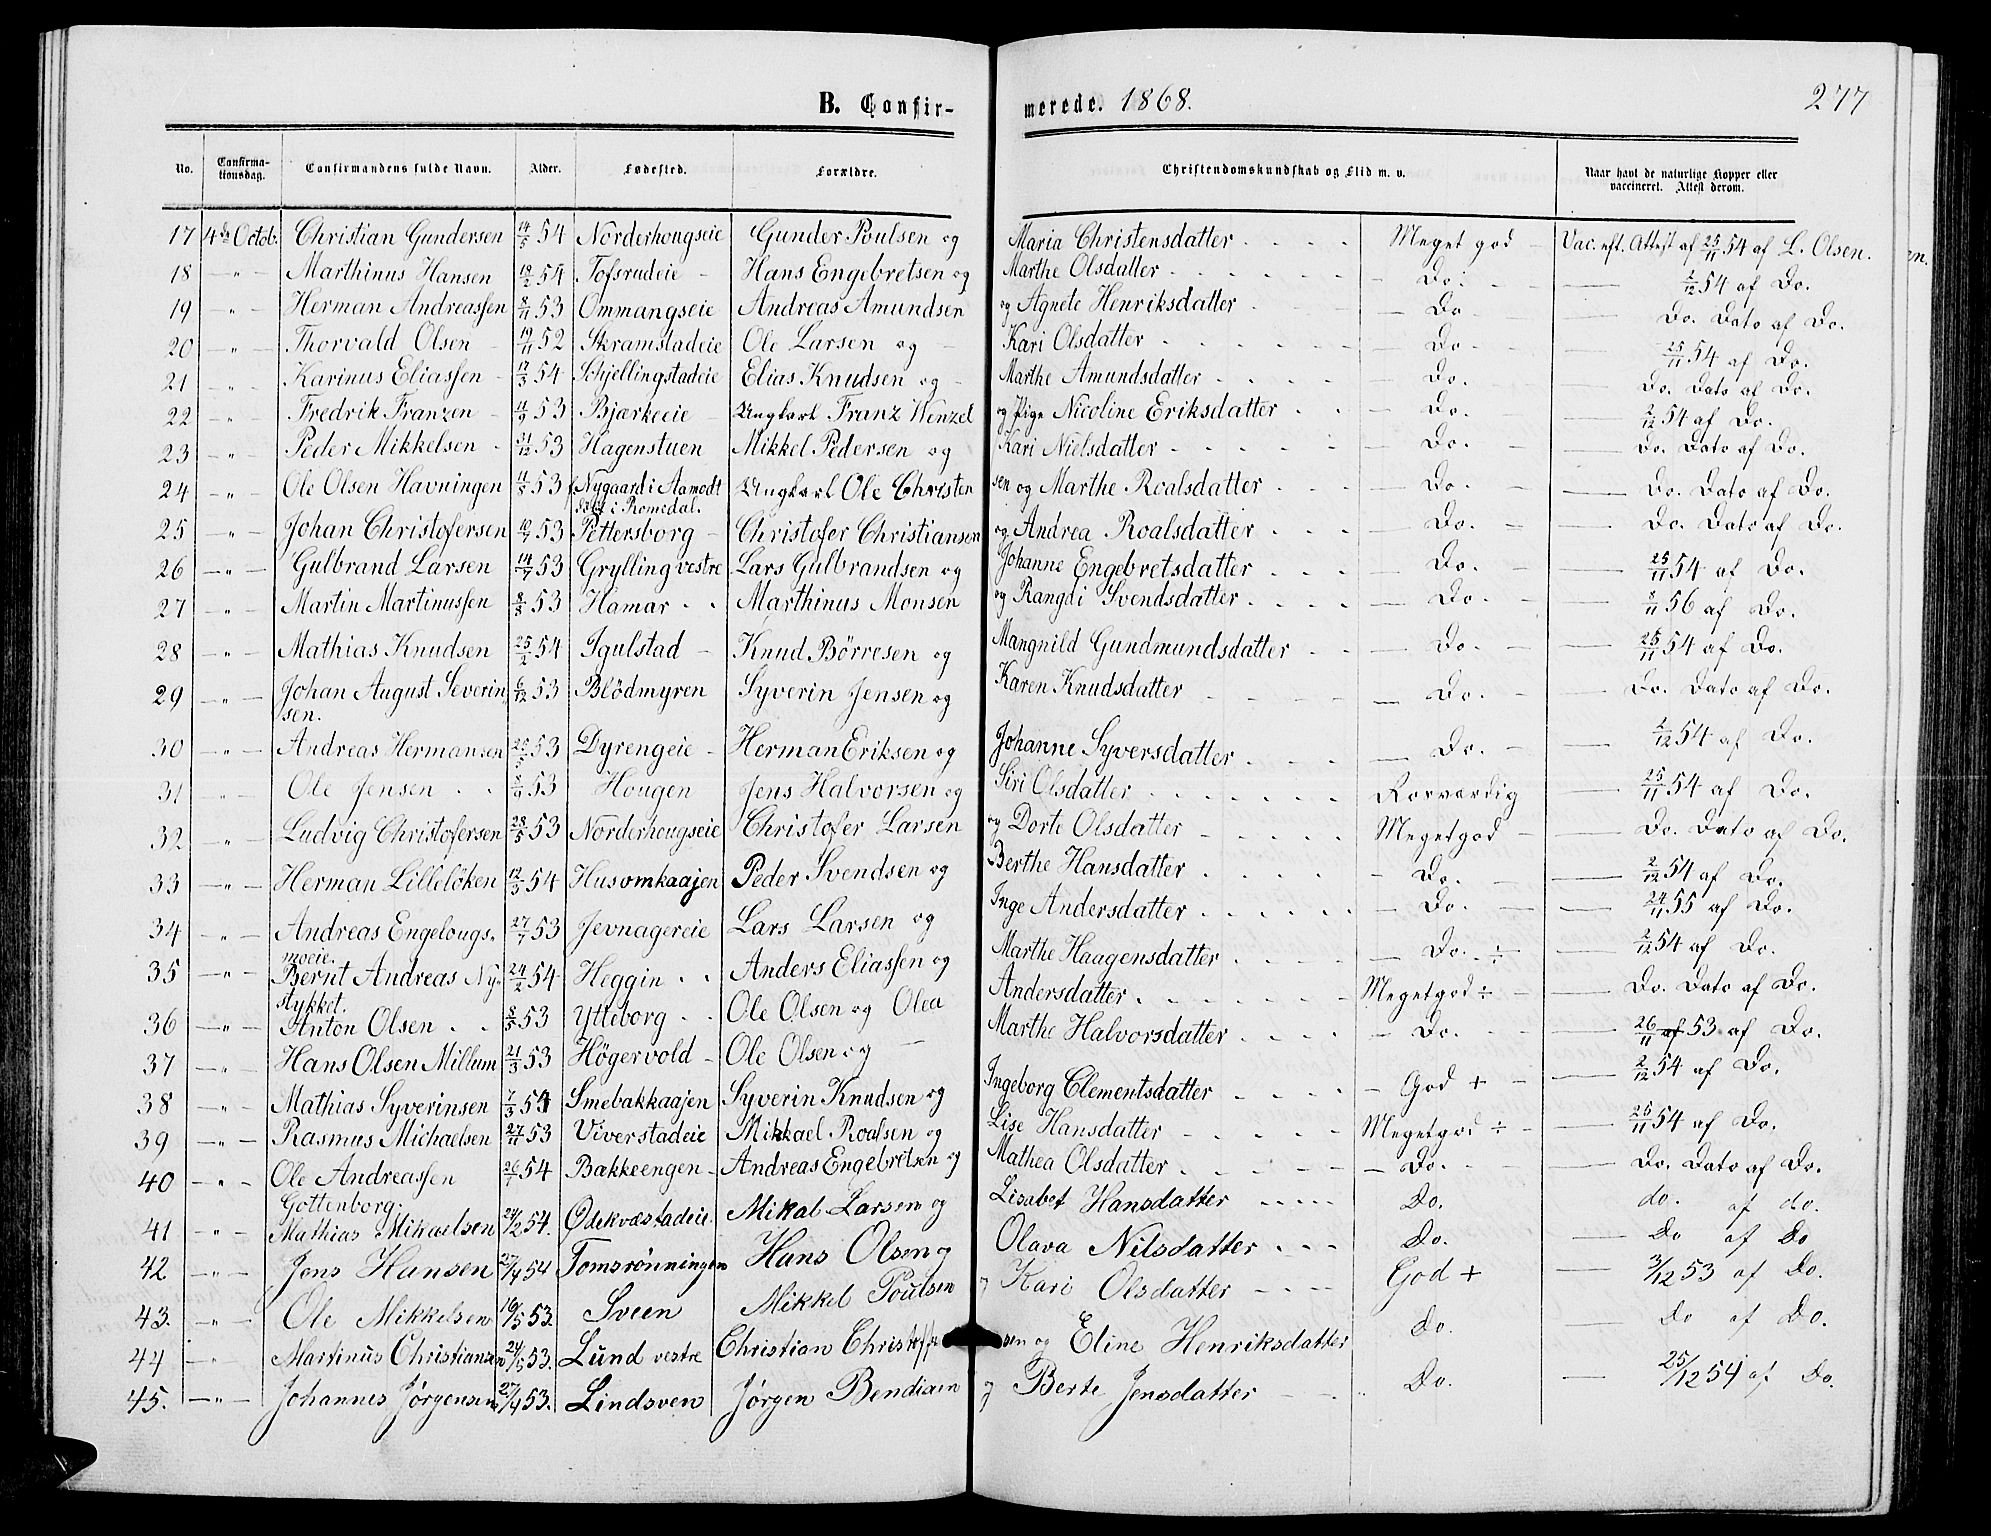 B. Confir- merede. 1868. 277
No. Confirma-tionsdag. Confirmandens fulde Navn. Alder. Fødested. Forældre. Christendomskundskab og Flid m. v. Naar havt de naturlige Kopper eller vaccineret. Attest derom.
17 4de Octob. Christian Gundersen 14/5 54 Norderhougseie Gunder Poulsen og Maria Christensdatter Meget god Vac. eft. Attest af 25/11 54 af L. Olsen.
18 " Marthinus Hansen 18/2 54 Tofsrudeie Hans Engebretsen og Marthe Olsdatter Do. 2/12 54 af Do.
19 " Herman Andreassen 8/11 53 Ommangseie Andreas Amundsen og Agnete Henriksdatter Do Do. Dato af Do.
20 " Thorvald Olsen 19/11 52 Skramstadeie Ole Larsen og Kari Olsdatter Do 25/11 54 af Do.
21 " Karinus Eliassen 17/3 54 Schjellingstadeie Elias Knudsen og Marthe Amundsdatter Do. Do. Dato af Do.
22 " Fredrik Franzen 14/9 53 Bjærkeeie Ungkarl Franz Wenzel og Pige Nicoline Eriksdatter Do. 2/12 54 af Do.
23 " Peder Mikkelsen 31/12 53 Hagenstuen Mikkel Pedersen og Kari Nielsdatter Do. Do. Dato af Do.
24 " Ole Olsen Havningen 11/5 53 Nygaard i Aamodt Ungkarl Ole Christen sen og Marthe Roalsdatter Do. Do. Dato af Do.
i Romedal.
25 " Johan Christofersen 19/7 53 Pettersborg Christofer Christiansen og Andrea Roalsdatter Do. Do. Dato af Do.
26 " Gulbrand Larsen 14/7 53 Grylling vestre Lars Gulbrandsen og Johanne Engebretsdatter Do. 25/11 54 af Do.
27 " Martin Martinussen 8/8 53 Hamar Marthinus Monsen og Rangdi Svendsdatter Do. 8/11 56 af Do.
28 " Mathias Knudsen 25/2 54 Igulstad Knud Börresen og Mangnild Gundmundsdatter Do. 25/11 54 af Do.
29 " Johan August Severin 6/12 53 Blödmyren Syverin Jensen og Karen Knudsdatter Do. Do. Dato af Do.
sen.
30 " Andreas Hermansen 25/5 53 Dyrengeie Herman Eriksen og Johanne Syversdatter Do. 2/12 54 af Do.
31 " Ole Jensen 53 Hougen Jens Halvorsen og Siri Olsdatter Rosværdig 25/11 54 af Do.
32 " Ludvig Christofersen 28/5 53 Norderhougseie Christofer Larsen og Dorte Olsdatter Megetgod Do. Dato af Do.
33 " Herman Lillelöken 12/3 54 Husomkaajen Peder Svendsen og Berthe Hansdatter Do. 2/12 54 af Do.
34 " Andreas Engelougs- 27/7 53 Jevnagereie Lars Larsen og Inge Andersdatter Do. 24/11 55 af Do.
moeie.
35 " Bernt Andreas Ny- 24/2 54 Heggin Anders Eliassen og Marthe Haagensdatter Do. ÷ 2/12 54 af Do.
stykket.
36 " Anton Olsen 8/5 53 Ytteborg Ole Olsen og Olea Andersdatter Megetgod ÷ Do. Dato af Do.
37 " Hans Olsen Millum 21/3 53 Högervold Ole Olsen og Marthe Halvorsdatter Do. 26/11 af 53 af Do.
38 " Mathias Syverinsen 7/3 54 Smebakkaajen Syverin Knudsen og Ingeborg Clementsdatter God + 2/12 54 af Do.
39 " Rasmus Michaelsen 27/11 53 Viverstadeie Mikkael Roalsen og Lise Hansdatter Megetgod ÷ 25/11 54 af Do.
40 " Ole Andreassen 26/1 54 Bakkeengen Andreas Engebretsen og Mathea Olsdatter Do. Do. Dato af Do.
Gottenborg.
41 " Mathias Mikaelsen 24/2 54. Ødekvæstadeie Mikal Larsen og Lisabet Hansdatter Do. do. af do.
42 " Jens Hansen 27/4 54 Tomsrønningen Hans Olsen og Olava Nilsdatter Do. Do af Do
43. " Ole Mikkelsen 16/5 53. Sveen Mikkel Poulsen og Kari Olsdatter God + 3/12 53 af Do.
44 " Martinus Christiansen 24/5 53. Lund vestre Christian Christoffer sen og Eline Henriksdatter Do. Do af Do.
45. " Johannes Jørgensen 27/4 53. Lindsven Jørgen Bendixen og Berte Jensdatter Do. 25/12 54 af Do.